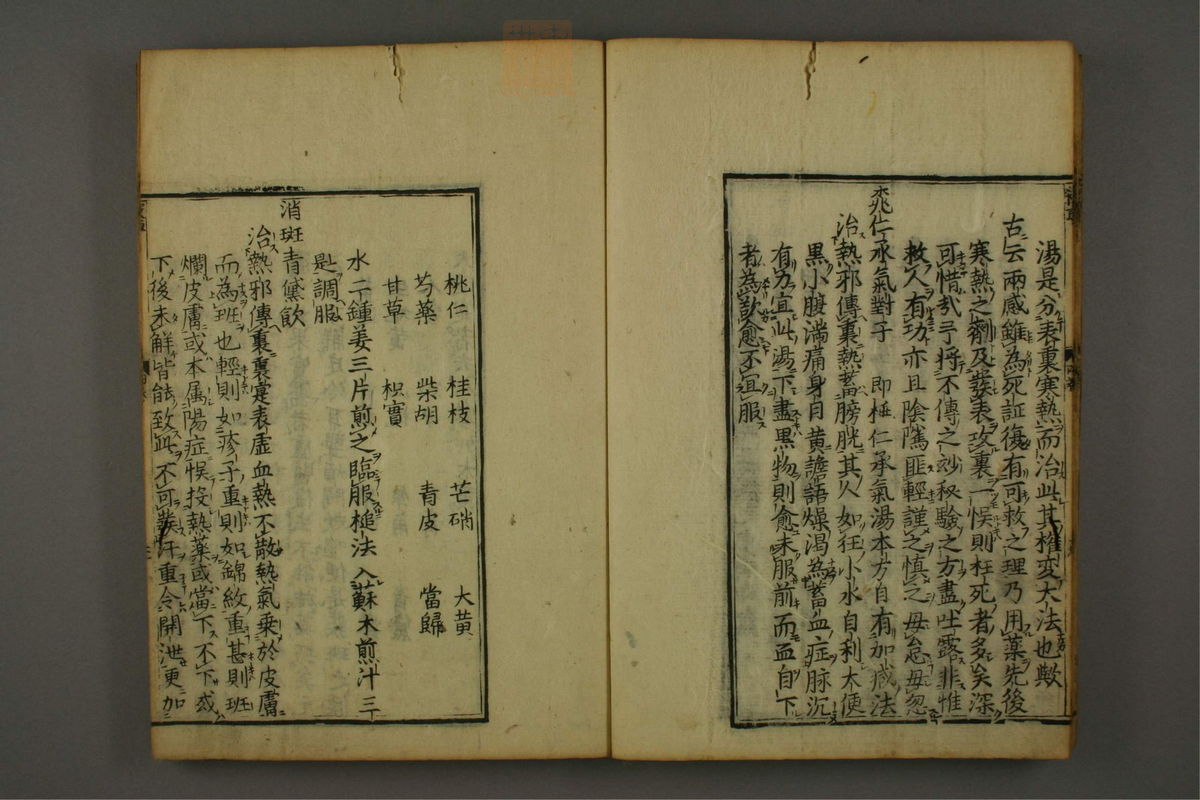 湯是分表裏寒熱而治此其權変大法也歟
古云兩感雖為死証復有可救之理乃用薬先後
寒熱之劑及發表攻裏一悞則枉死者多矣深
可惜哉予将不傳之妙秘驗之方盡吐露非惟
救人有功亦且陰隲匪輕謹之慎之毋怠毋忽
桃仁承氣對子　即桃仁承氣湯本方自有加减法
治熱邪傳裏熱蓄膀胱其人如狂小水自利大便
黒小腹満痛身目黄譫語燥渴為蓄血症脉沉
有力宜此湯下盡黒物則愈未服前而血自下
者為欲愈不宜服
桃仁　桂枝　芒硝　大黄
芍薬　柴胡　青皮　當歸
甘草　枳實
水二鍾姜三片煎之臨服槌法入蘇木煎汁三
匙調服
消斑青黛飲
治熱邪傳裏裏寔表虚血熱不散熱氣乗於皮膚
而為班也輕則如疹子重則如錦紋重甚則班
爛皮膚或本属陽症悞投熱薬或當下不下或
下後未解皆能致此不可發汗重令開泄更加